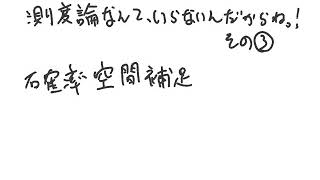 測度論なんて、いらないんだからね。!
その③
確率空間補足